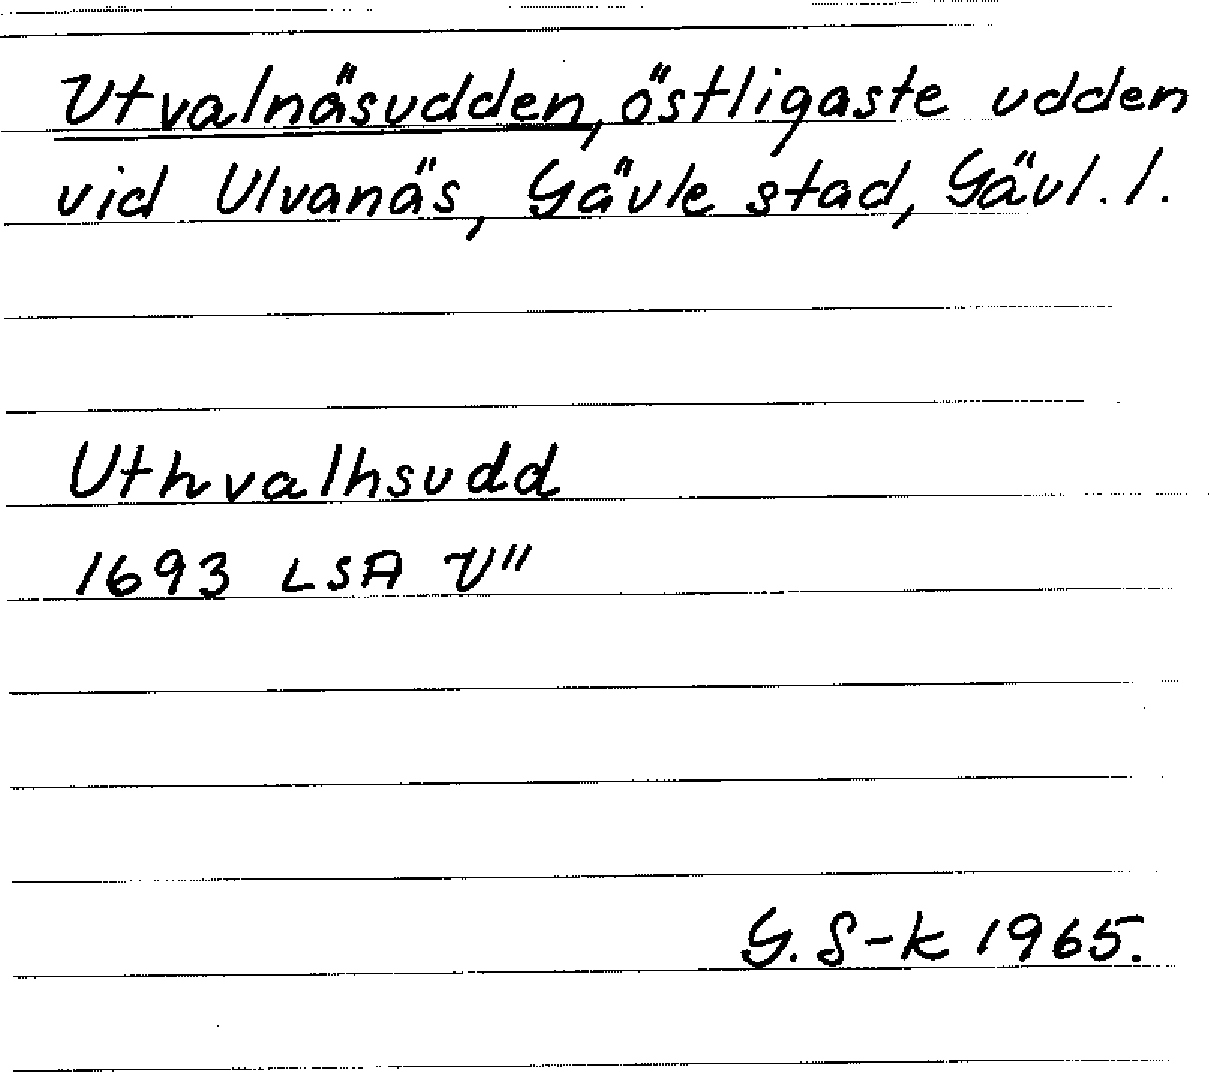 Utvalnäsudden, östligaste udden
vid Ulvanäs, Gävle stad, Gävl. l.
Uthvalhsudd
1693 LSA V"
G. S-k 1965.